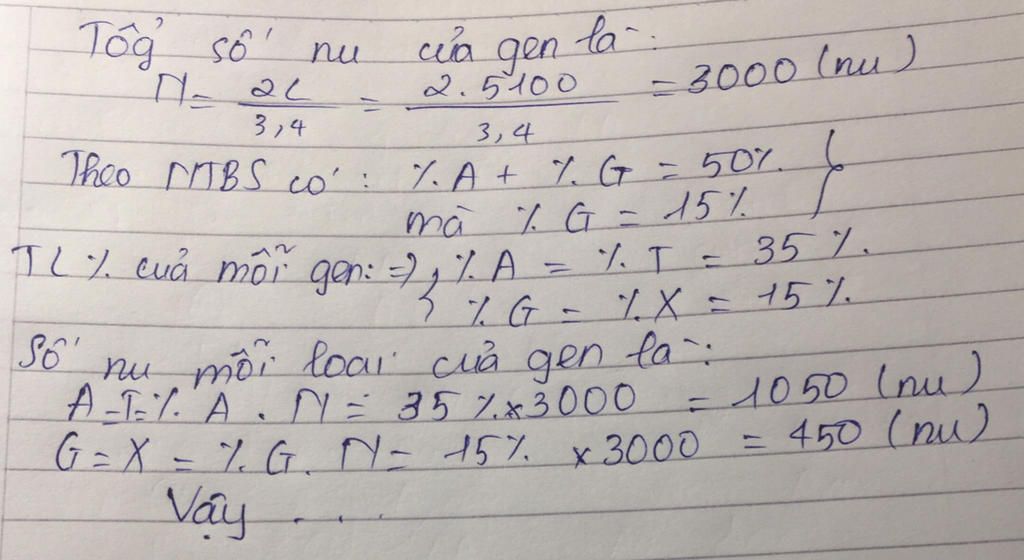 Tổg số nu của gen là:
N = 2L / 3,4 = 2.5100 / 3,4 = 3000 (nu)
Theo NTBS có: %A + %G = 50%
mà %G = 15%
TL % cuả mỗi gen: => %A = %T = 35%.
%G = %X = 15%.
Số nu mỗi loai cuả gen là:
A=T=%A.N = 35%×3000 = 1050 (nu)
G=X = %G.N = 15% ×3000 = 450 (nu)
Vậy ....